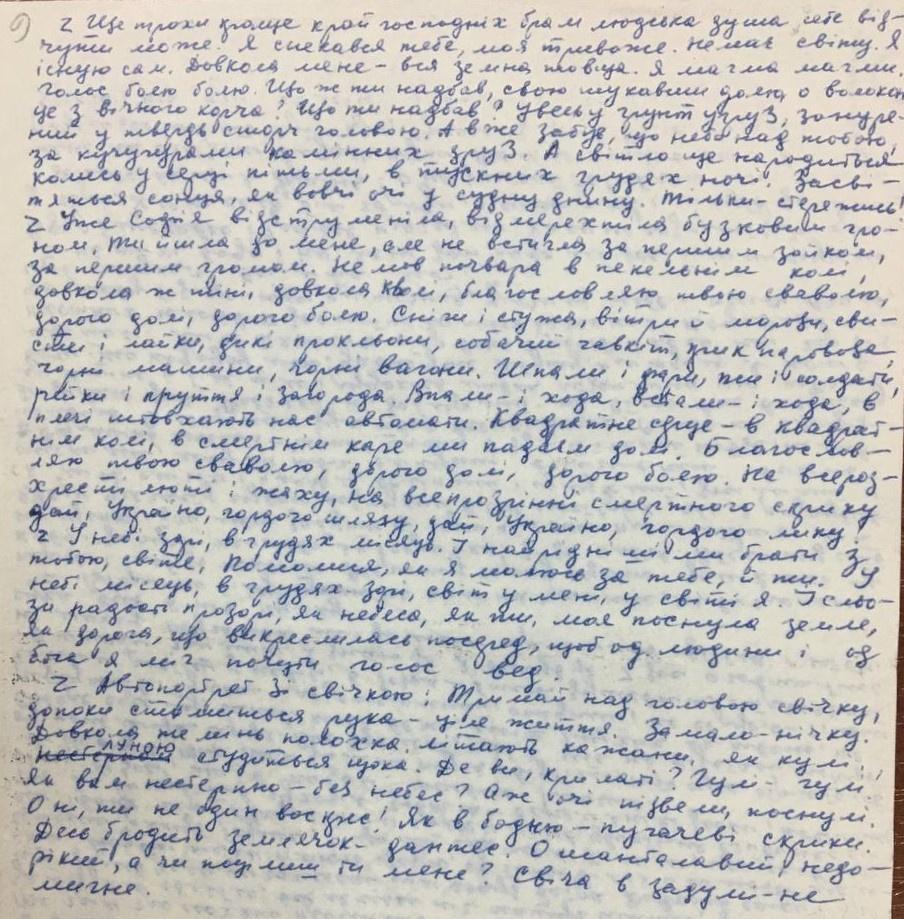 9) Z Ще трохи краще край господніх брам людська душа себе від-
чути може. Я спекався тебе, моя тривоже. Немає світу. Я
існую сам. Довкола мене – вся земна товща. Я магма магми,
голос болю болю. Що ж ти надбав, свою шукавши долю, о волокон-
це з вічного корча? Що ти надбав? Увесь у ґрунт угруз, зануре-
ний у твердь сторч головою. А вже забув, що небо над тобою,
за кучугурами камінних друз. А світло ще народиться
колись у серці пітьми, в тускних грудях ночі. Засві-
тяться сонця, як вовчі очі у судну днину. Тільки – стережись!
Z Уже Софія відструменіла, відмерехтіла бузковим гро-
ном, ти йшла до мене, але не встигла за першим зойком,
за першим громом. Немов почвара в пекельнім колі,
довкола ж тіні, довкола кволі, благословляю твою сваволю,
дорого долі, дорого болю. Сніги і стужа, вітри й морози, сви-
сти і лайки, дикі прокльони, собачий гавкіт, крик паровоза,
чорні машини, чорні вагони. Шпали і фари, пси і солдати,
рейки і пруття і загорода. Впали – і хода, встали – і хода, в
плечі штовхають нас автомати. Квадратне серце – в квадрат-
нім колі, в смертнім каре ми падаєм долі. Благослов-
ляю твою сваволю, дорого долі, дорого болю. На всероз-
хресті люті і жаху, на всепрозрінні смертного скрику
дай, Україно, гордого шляху, дай, Україно, гордого лику.
Z У небі зорі, в грудях місяць. І найрідніші ми брати з
тобою, світе, Помолися, як я молюсь за тебе, й ти. У
небі місяць, в грудях зорі, світ у мені, у світі я. І сльо-
зи радості прозорі, як небеса, як ти, моя поснула земле,
як дорога, що викреслилась посеред, щоб од людини і од
бога я міг почути голос вед.
Z Автопортрет зі свічкою: Тримай над головою свічку,
допоки стомиться рука – ціле життя. Замало – нічку.
Довкола темінь полохка. літають кажани, як кулі,
луною студиться щока. Де ви, крилаті? Гулі – гулі
Як вам нестерпно – без небес? Аж очі підвели, поснулі.
О ні, ти не один воскрес! Як в бодню – пугачеві скрики.
Десь бродить землячок – дантес. О шанталавий, недо-
рікий, а чи поцілиш ти мене? Свіча в задумі – не
мигне.